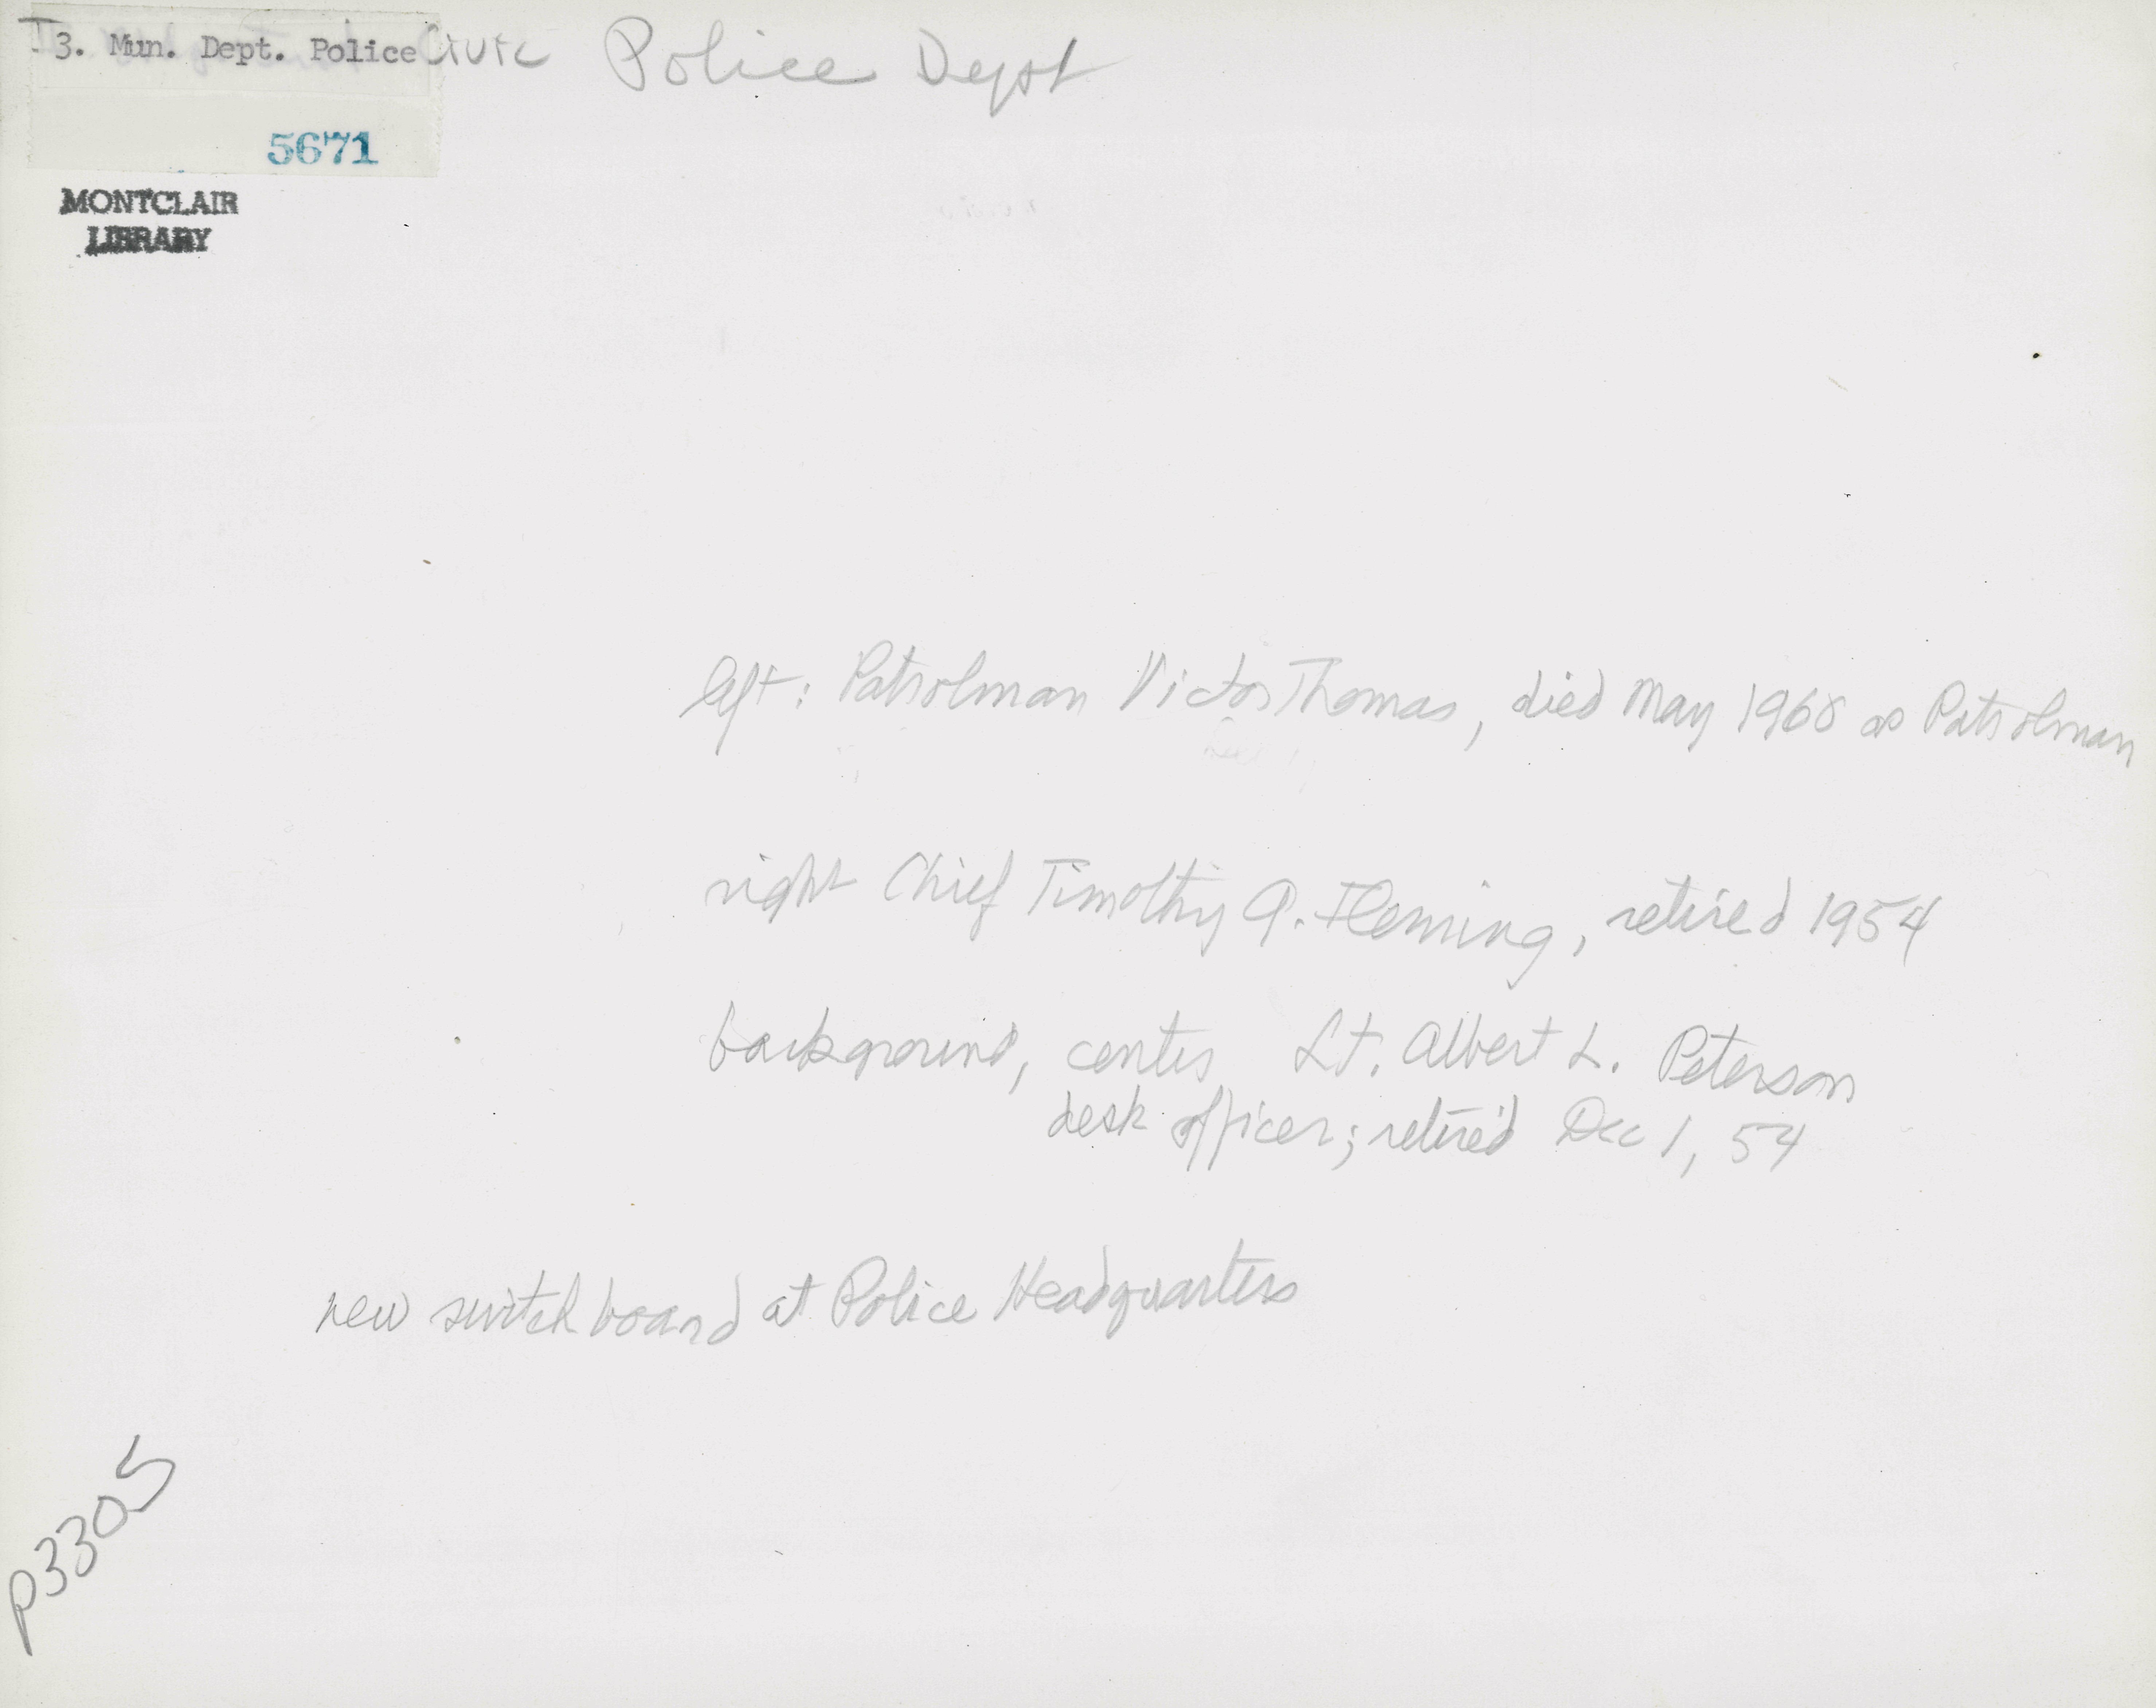 I3. Mun. Dept. Police Civic Police Dept
5671
MONTCLAIR
LIBRARY
left: Patrolman Victor Thomas, died May 1968 as Patrolman
right Chief Timothy A. Fleming, retired 1954
background, center Lt. Albert L. Peterson
desk officer; retired Dec 1, 54
new switchboard at Police Headquarters
p3305